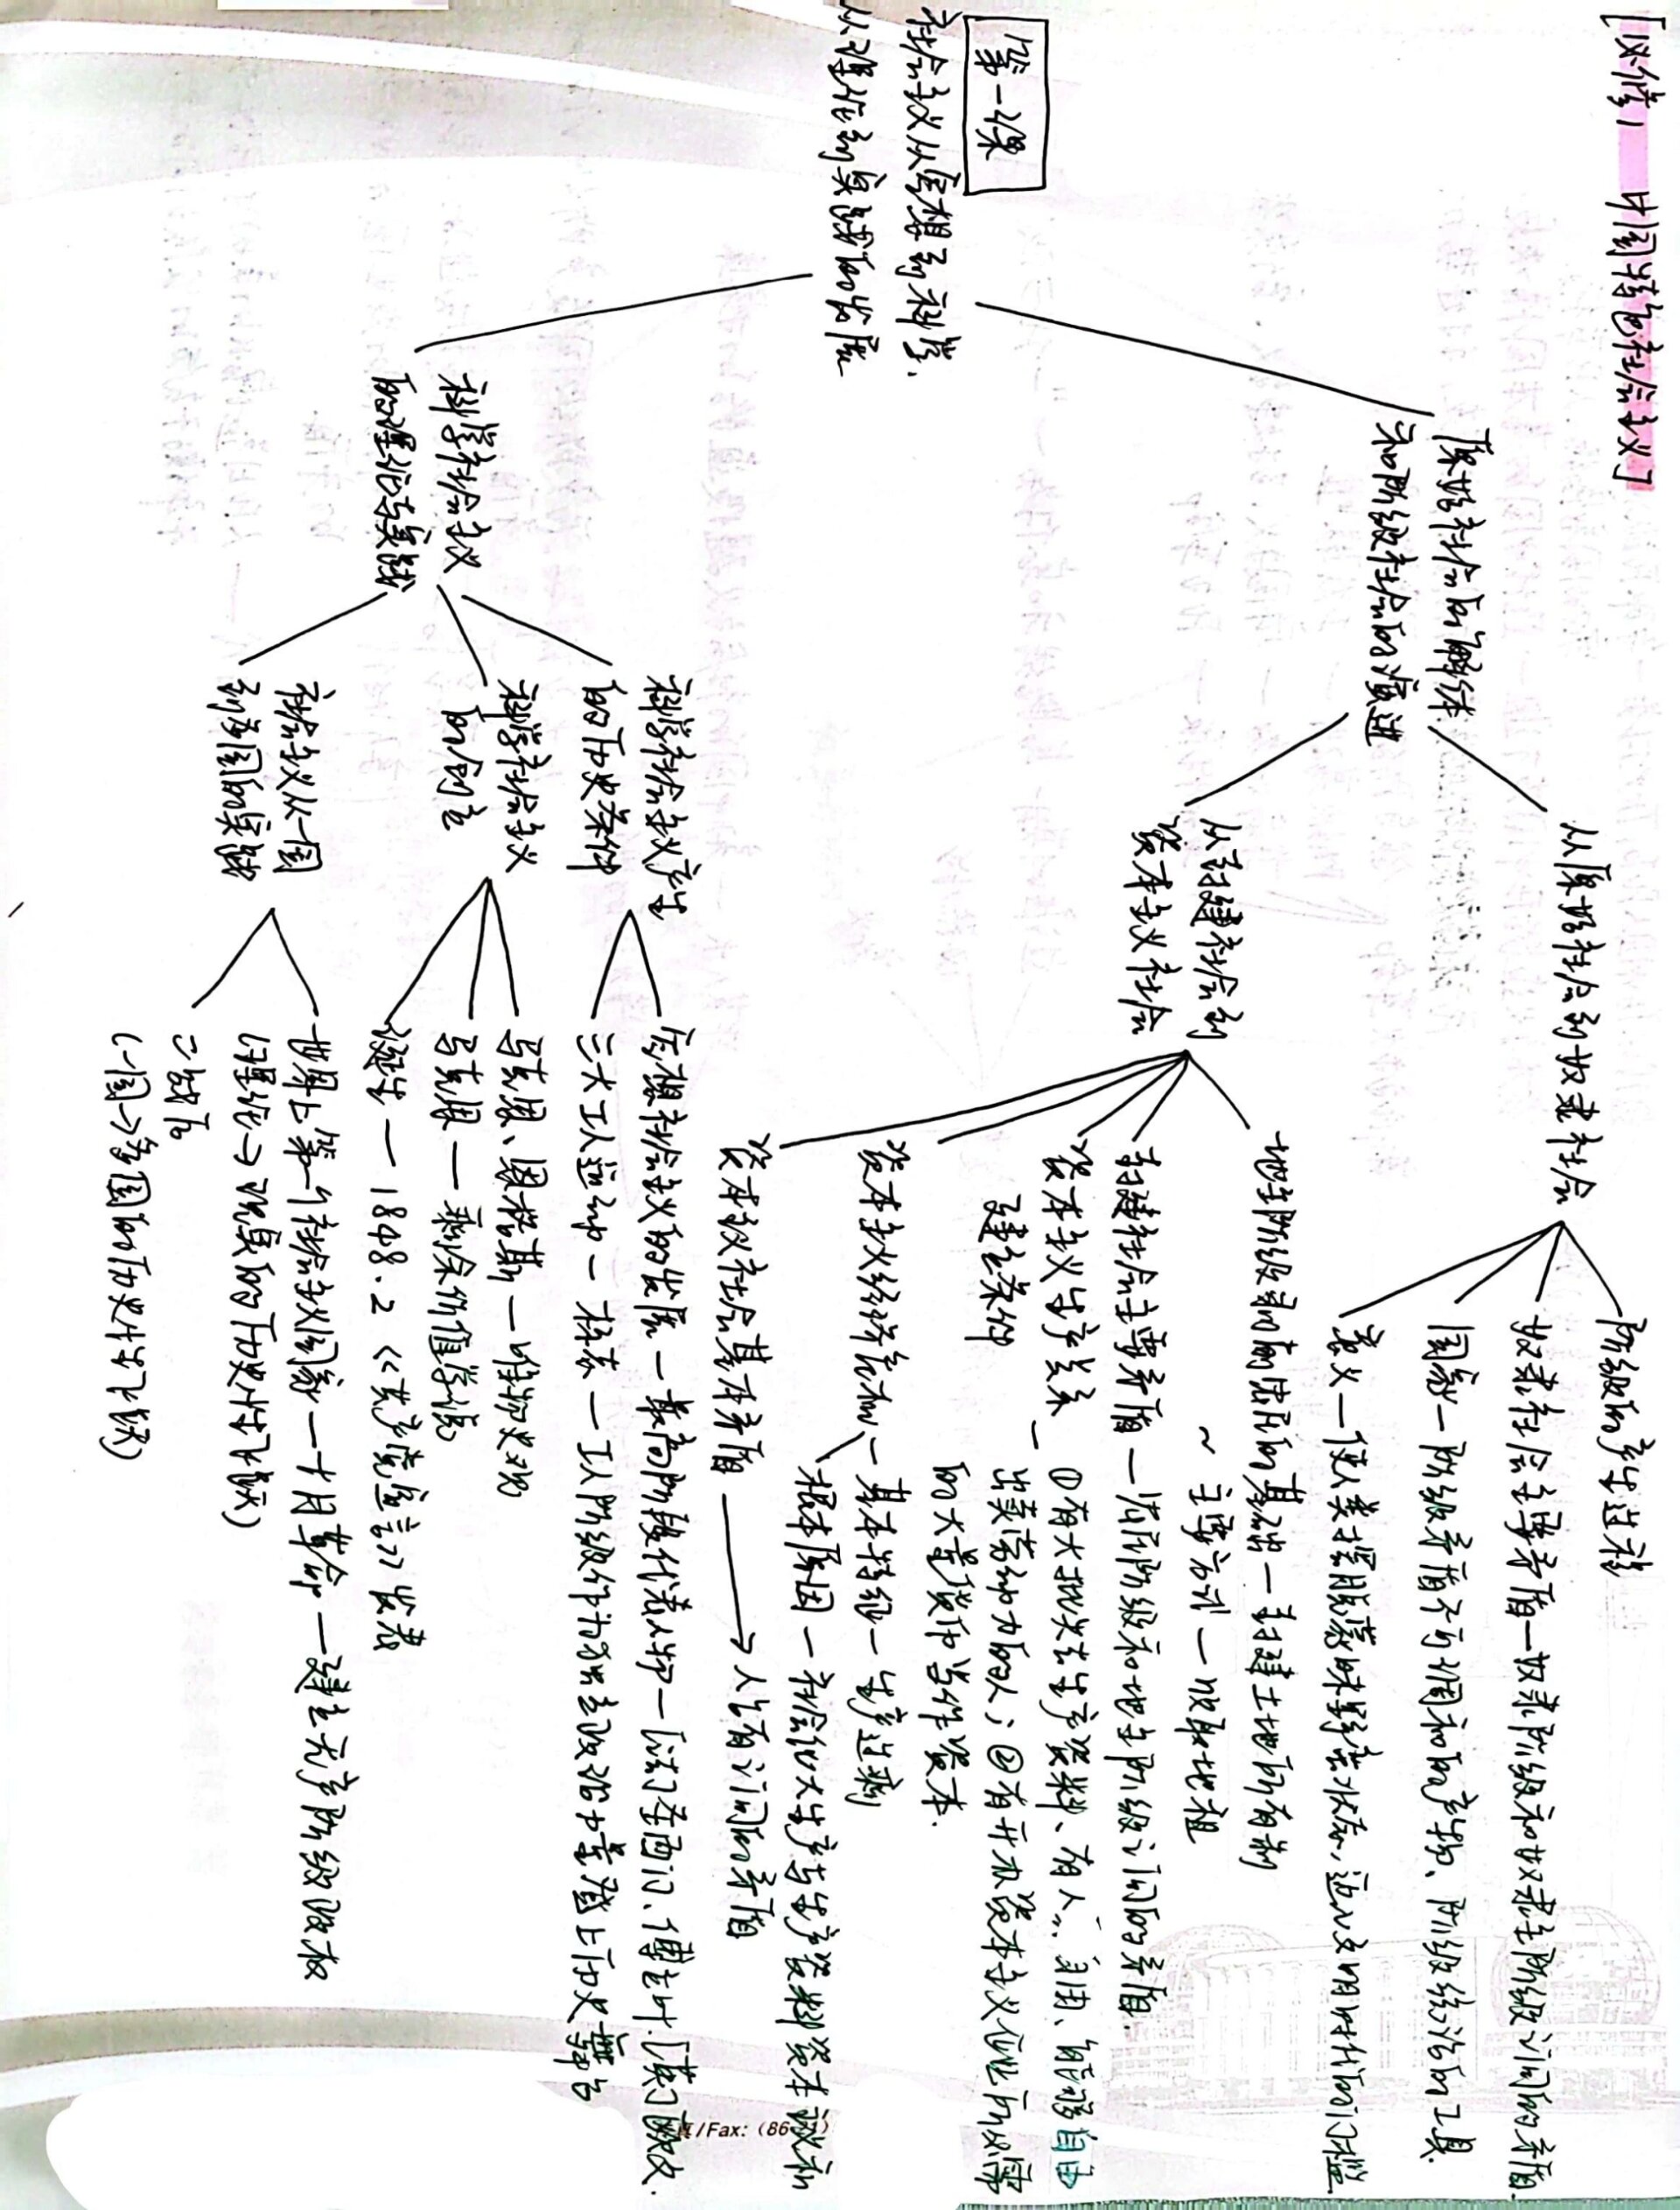 [必修1 中国特色社会主义]
第一课
社会主义从空想到科学、
从理论到实践的发展
原始社会的解体
和阶级社会的演进
从原始社会到奴隶社会
阶级的产生过程
奴隶社会主要矛盾—奴隶阶级和奴隶主阶级之间的矛盾.
国家—阶级矛盾不可调和的产物、阶级统治的工具.
意义—使人类摆脱蒙昧野蛮状态,迈入文明时代的门槛
从封建社会到
资本主义社会
地主阶级剥削农民的基础—封建土地所有制
~ 主要方式—收取地租
封建社会主要矛盾—农民阶级和地主阶级之间的矛盾.
资本主义生产关系—①有大批失去生产资料、有人身自由、能够自由
建立条件
出卖劳动力的人;②有开办资本主义企业所必需
的大量货币当作资本.
资本主义经济危机—基本特征—生产过剩
根本原因—社会化大生产与生产资料资本主义私
资本主义社会基本矛盾 → 人占有之间的矛盾
科学社会主义
的理论与实践
科学社会主义产生
的历史条件
空想社会主义的发展—最高阶段代表人物—[法]圣西门、傅立叶.[英]欧文.
三大工人运动—标志—工人阶级作为独立政治力量登上历史舞台
科学社会主义
的创立
马克思、恩格斯—唯物史观
马克思—剩余价值学说
诞生—1848.2《共产党宣言》发表
社会主义从一国
到多国的实践
世界上第一个社会主义国家—十月革命—建立无产阶级政权
(理论→现实的历史性飞跃)
二战后
(一国→多国的历史性飞跃)
真/Fax: (86-